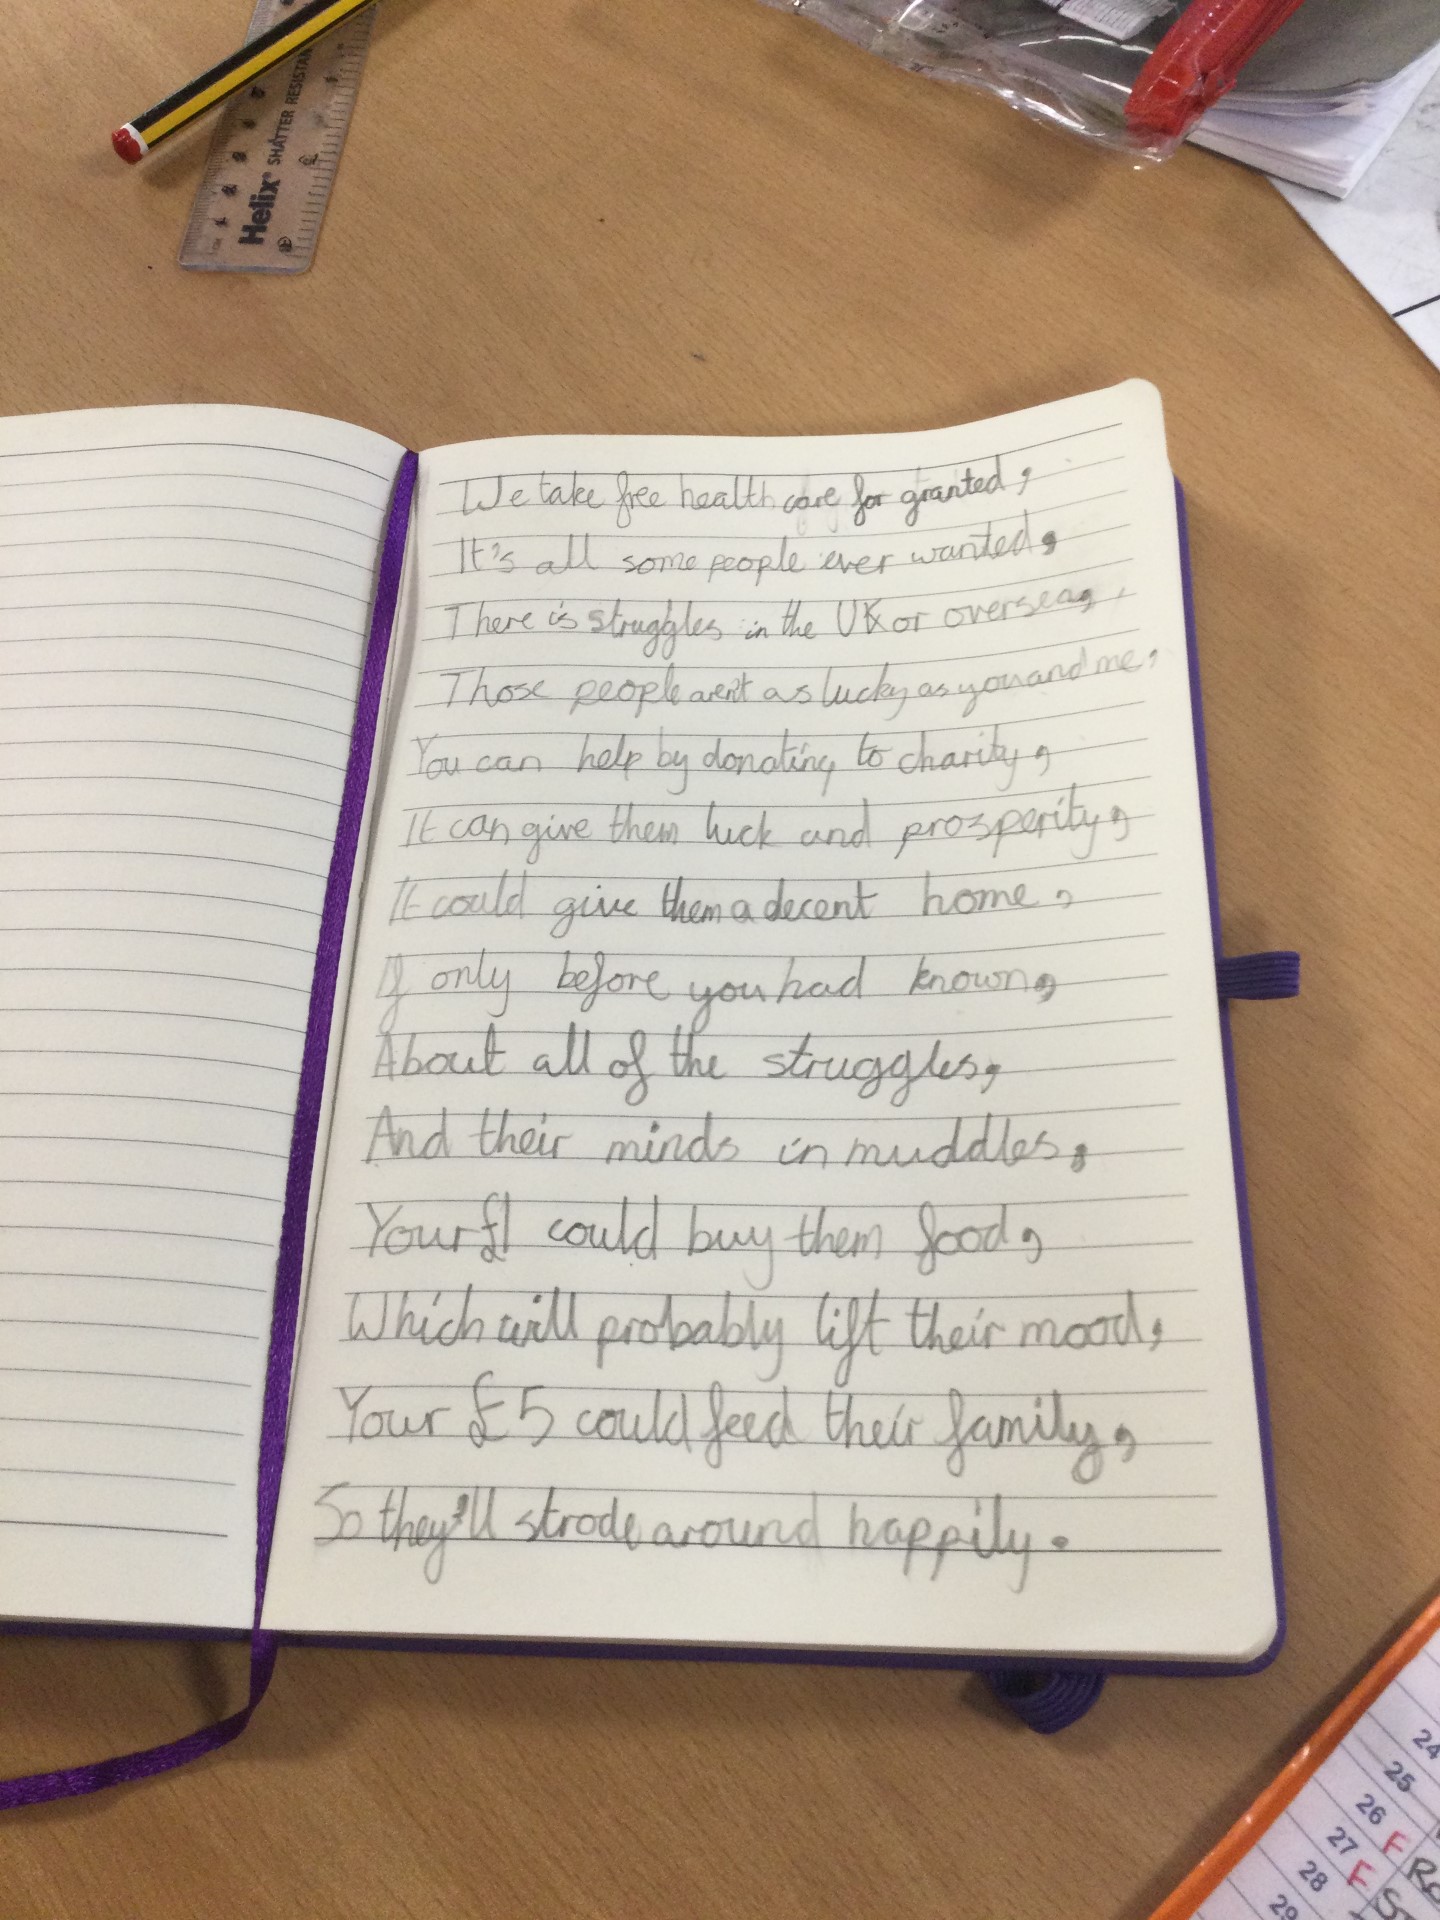 Helix® SHATTER RESISTAN
We take free health care for granted,
It's all some people ever wanted,
There is struggles in the UK or overseas,
Those people aren't as lucky as you and me,
You can help by donating to charity,
It can give them luck and prosperity,
It could give them a decent home,
If only before you had known,
About all of the struggles,
And their minds in muddles,
Your £1 could buy them food,
Which will probably lift their mood,
Your £5 could feed their family,
So they'll strode around happily.
24
25
26 F
27 F
28
29